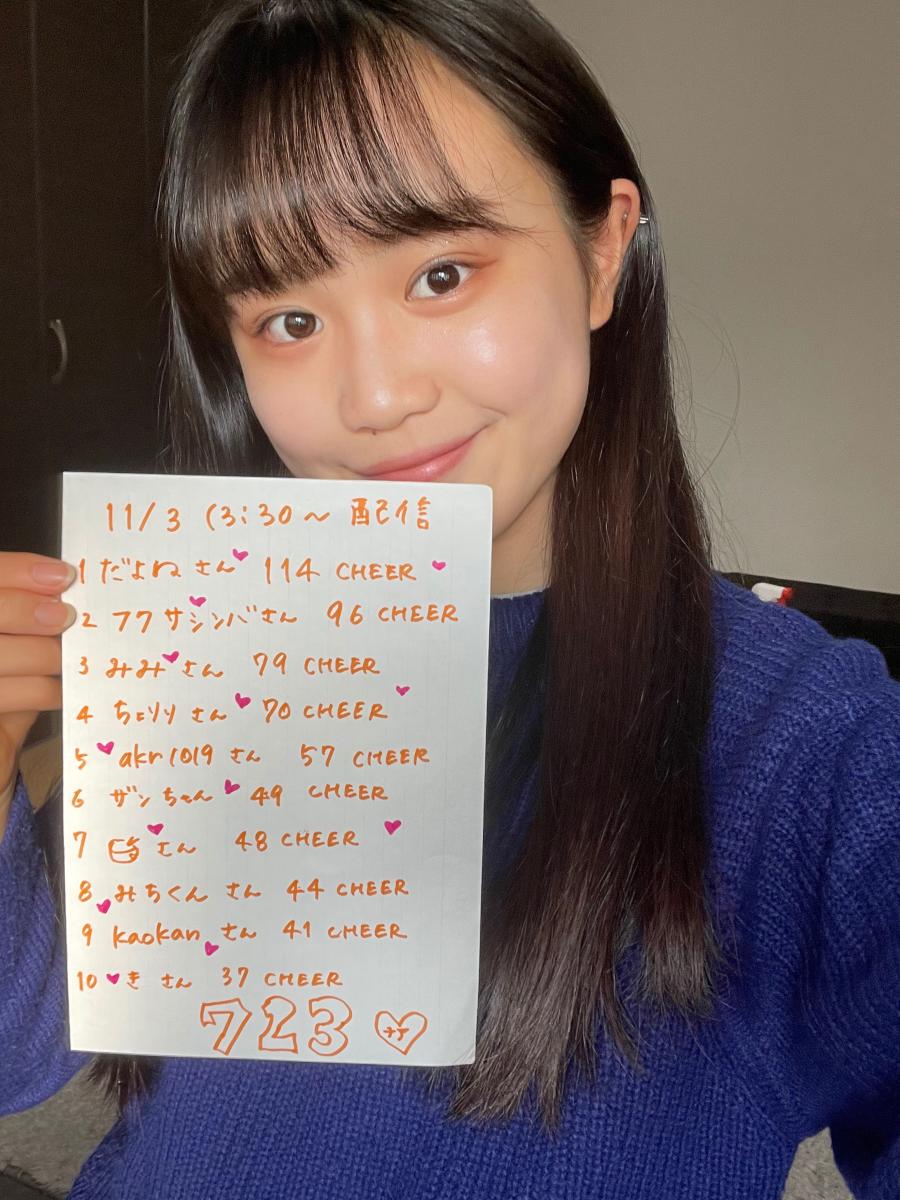 11/3 13:30～ 配信
1 だよねさん 114 CHEER
2 フワサシンバさん 96 CHEER
3 みみさん 79 CHEER
4 ちょりりさん 70 CHEER
5 akr1019 さん 57 CHEER
6 ザンちゃん 49 CHEER
7 さん 48 CHEER
8 みちくん さん 44 CHEER
9 kaokan さん 41 CHEER
10 き さん 37 CHEER
723